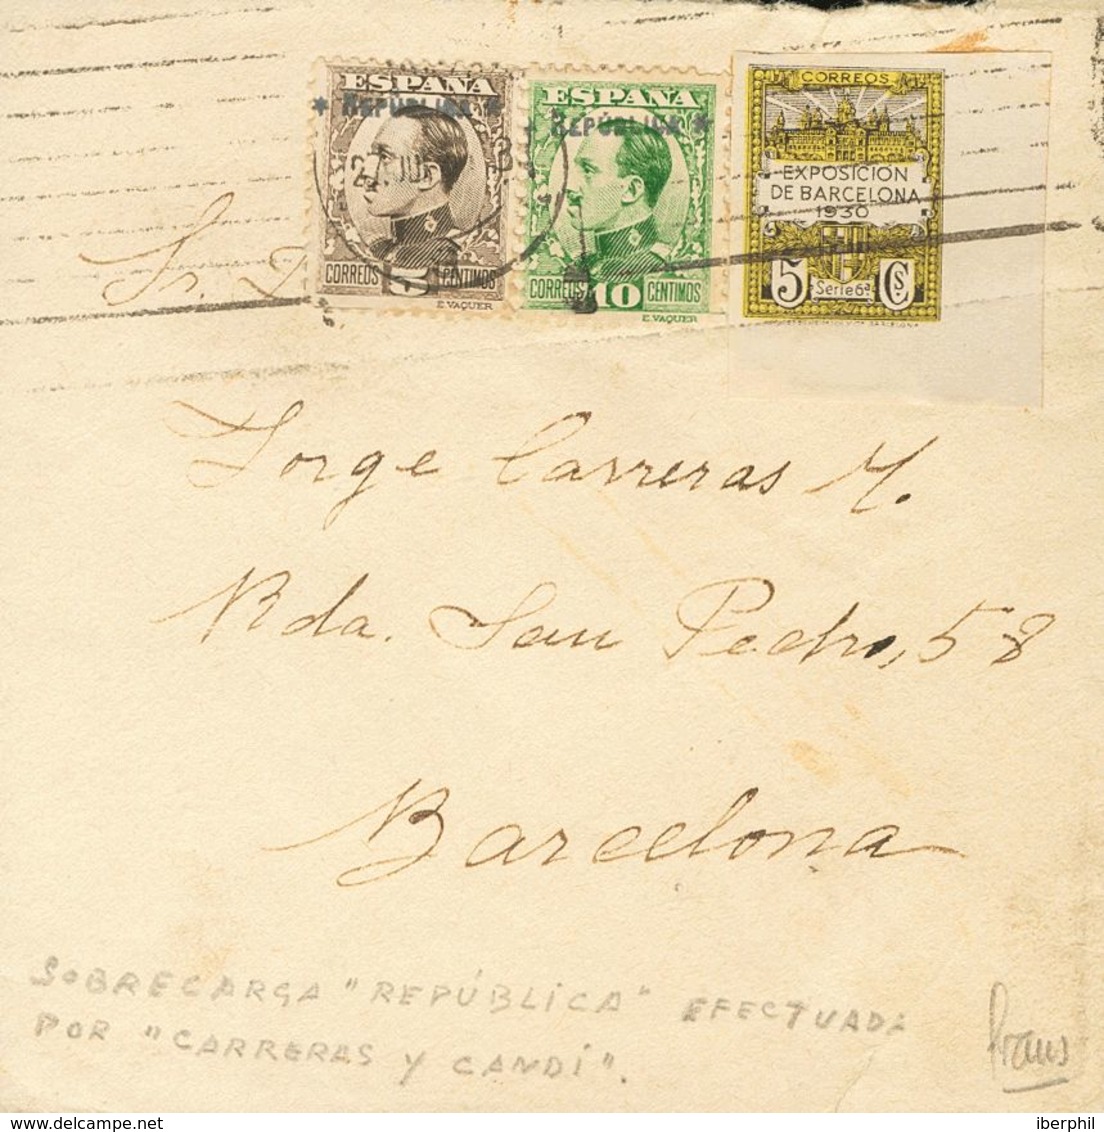 ESPAÑA
* REPÚBLICA *
27.JUL
CORREOS 5 CENTIMOS
E. VAQUER
ESPAÑA
REPÚBLICA *
CORREOS 10 CENTIMOS
E. VAQUER
CORREOS
EXPOSICION
DE BARCELONA
1930
5 Cs.
Serie 6ª
BARCELONA
Sr. D
Jorge Carreras M.
Rda. San Pedro, 58
Barcelona
SOBRECARGA "REPÚBLICA" EFECTUADA
POR "CARRERAS Y CANDÍ".
iberphil